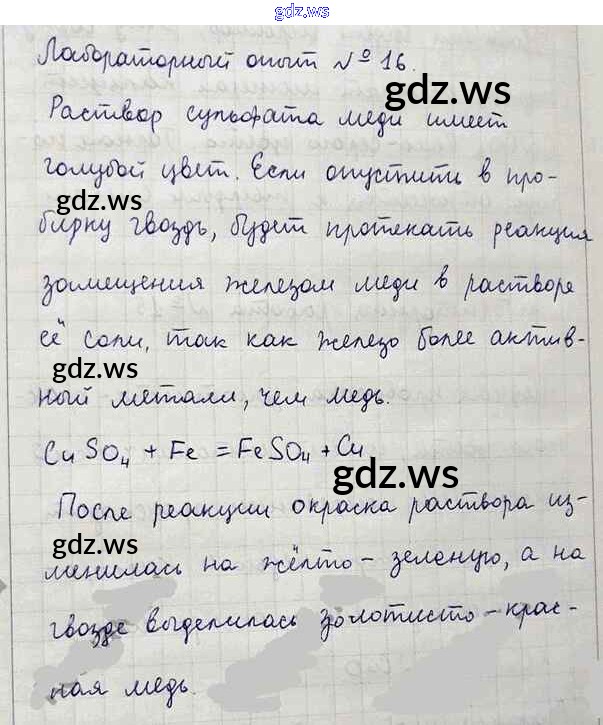 gdz.ws
Лабораторный опыт № 16.
gdz.ws
Раствор сульфата меди имеет
голубой цвет. Если опустить в про-
gdz.ws
бирку гвоздь, будет протекать реакция
замещения железом меди в растворе
её соли, так как железо более актив-
gdz.ws
ный металл, чем медь.
CuSO4 + Fe = FeSO4 + Cu
gdz.ws
После реакции окраска раствора из-
gdz.ws
менилась на жёлто-зеленую, а на
гвозде выделилась золотисто-крас-
ная медь.